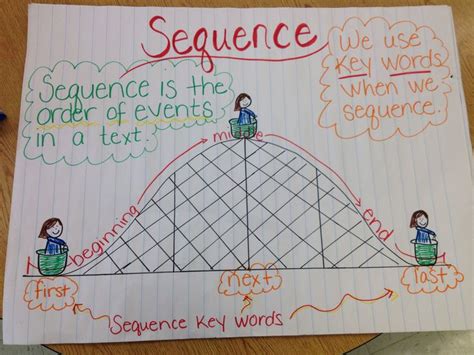 Sequence
Sequence is the
order of events
in a text.
We use
key words
when we
sequence.
beginning
middle
end
first
next
last
Sequence Key Words